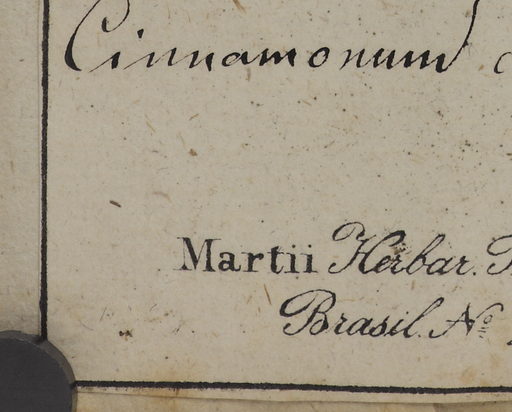 Cinnamonum
Martii Herbar.
Brasil. No